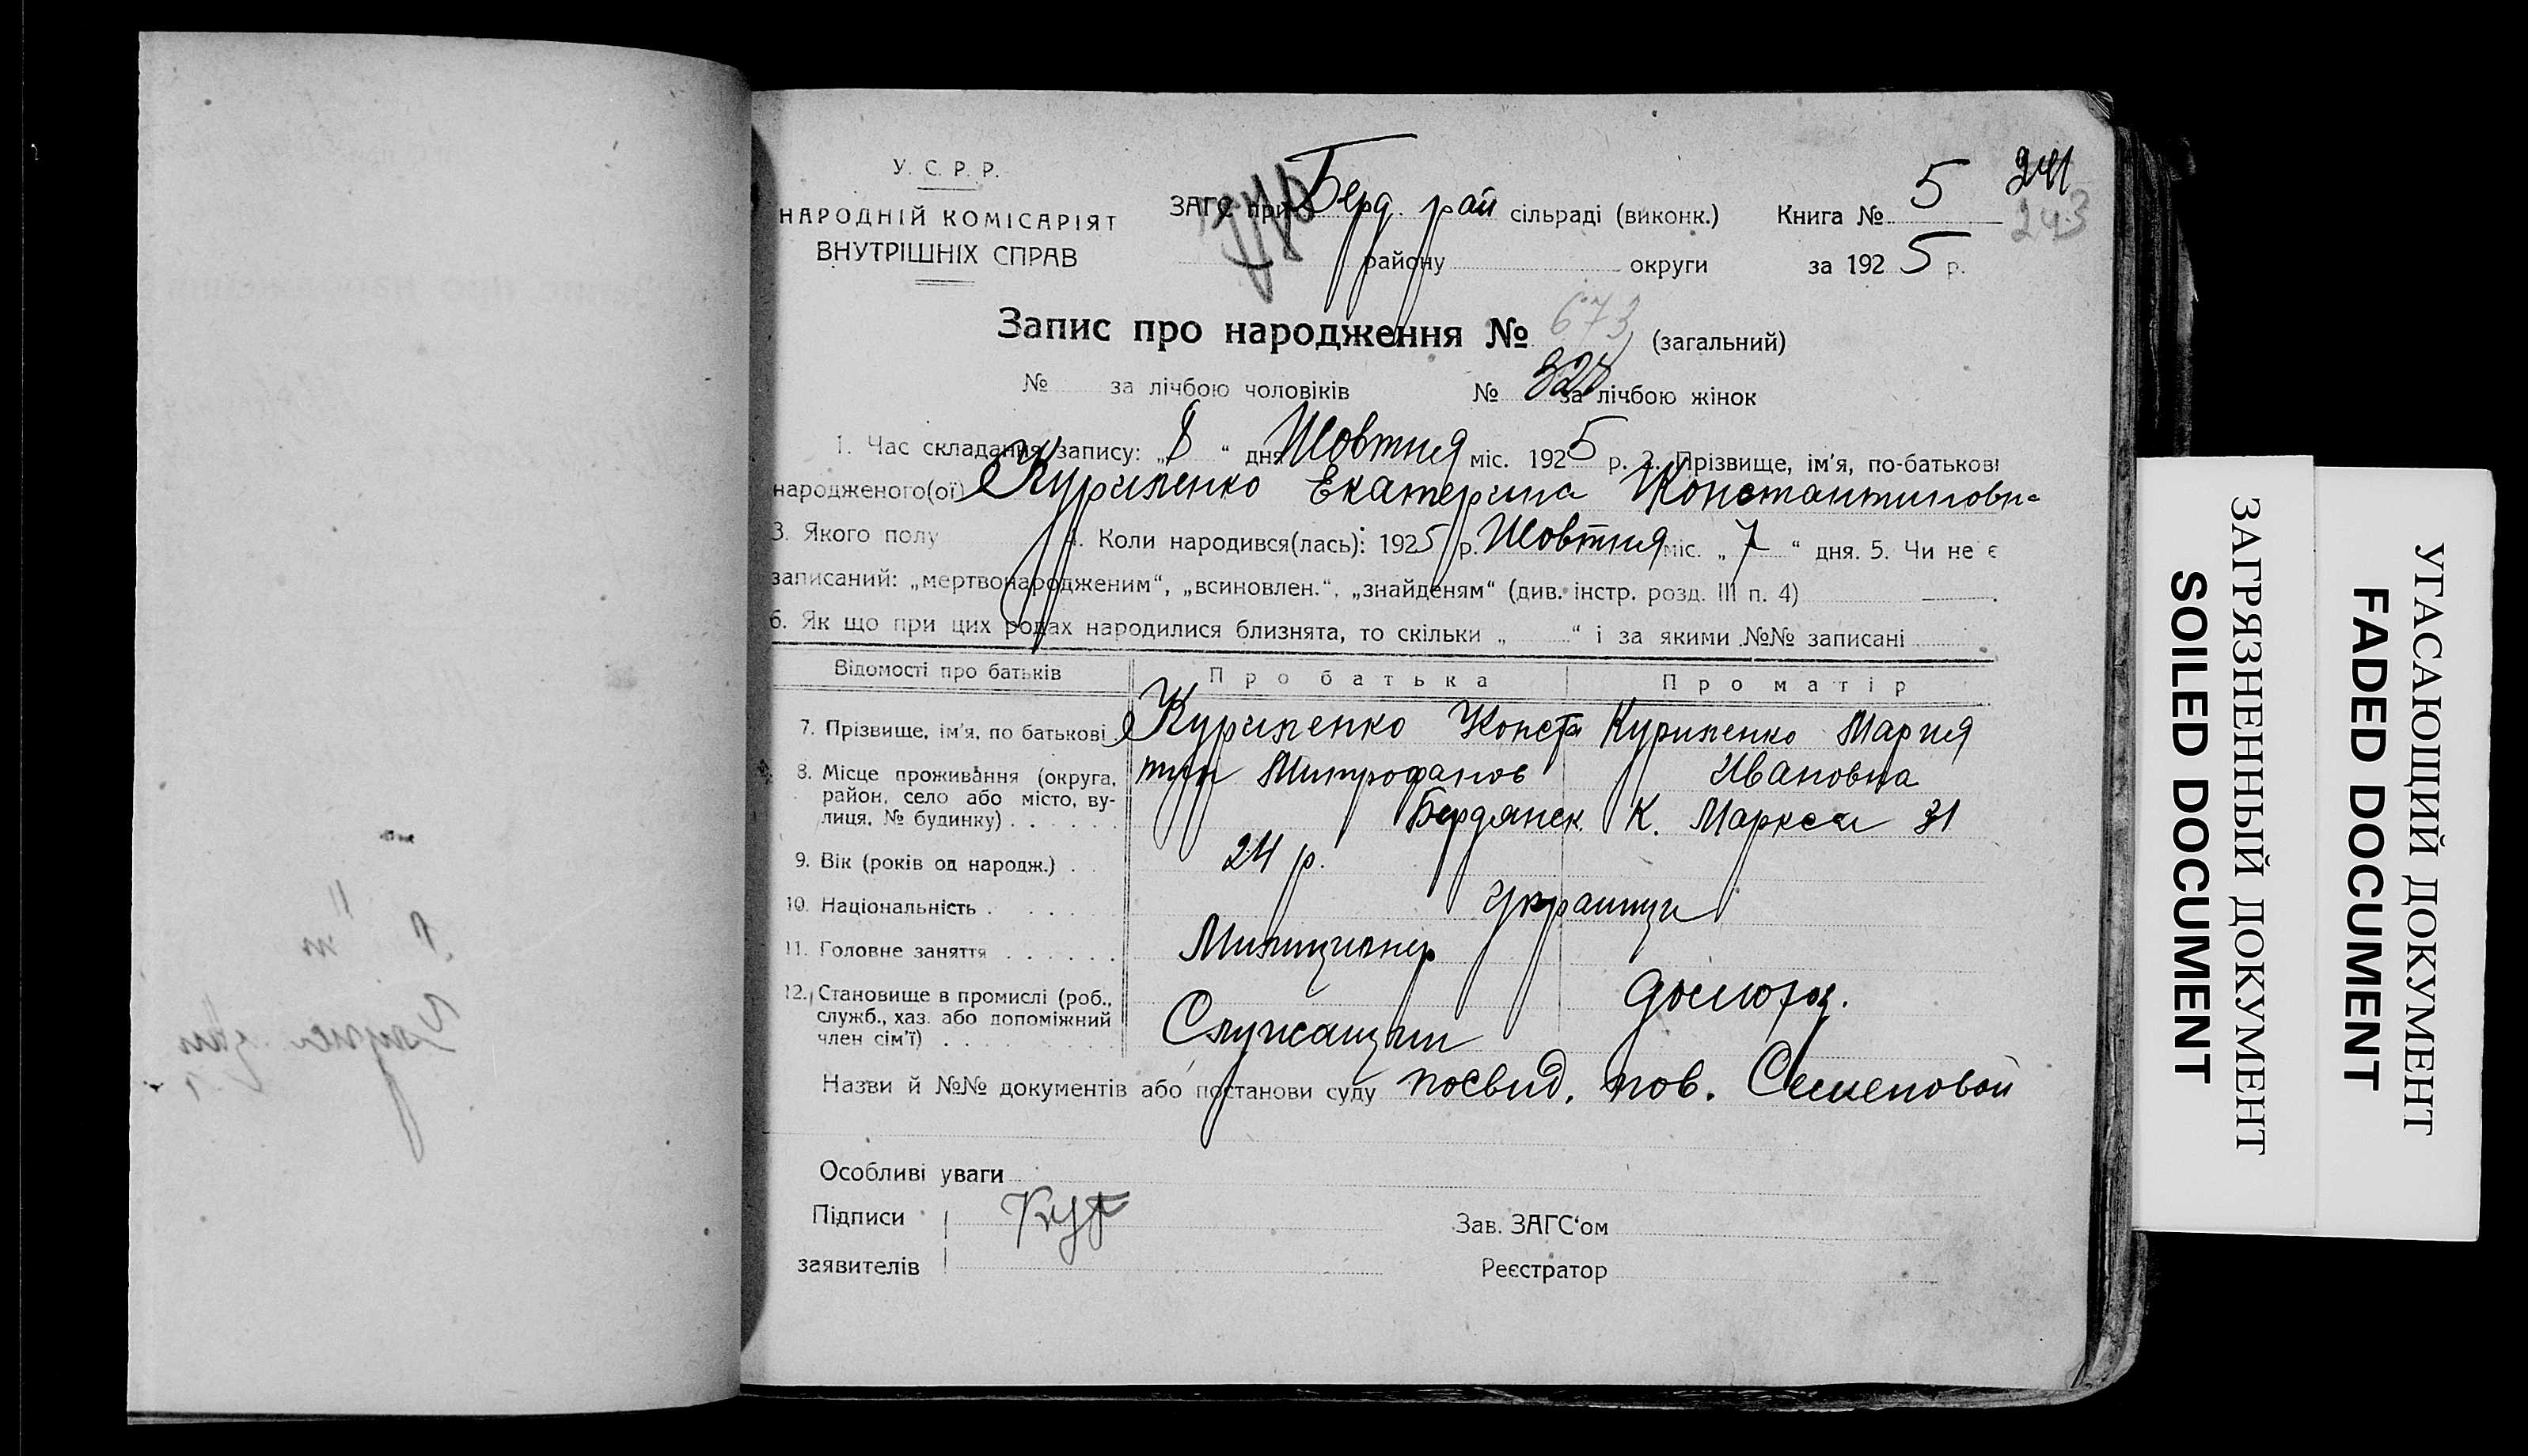 У. С. Р. Р.
НАРОДНІЙ КОМІСАРІЯТ
ВНУТРІШНІХ СПРАВ
ЗАГС при Берд. рай сільраді (виконк.)
району округи
Книга № 5
за 1925 р.
241
243
Запис про народження № 673 (загальний)
№ за лічбою чоловіків № 328 за лічбою жінок
1. Час складання запису: „8“ дня Жовтня міс. 1925 р. 2. Прізвище, ім'я, по-батькові
народженого(ої) Куриленко Екатерина Константиновна
3. Якого полу 4. Коли народився(лась): 1925 р. Жовтня міс. „7“ дня. 5. Чи не є
записаний: „мертвонародженим“, „всиновлен.“, „знайденям“ (див. інстр. розд. III п. 4)
6. Як що при цих родах народилися близнята, то скільки „ “ і за якими №№ записані
Відомості про батьків Про батька Про матір
7. Прізвище, ім'я, по батькові Куриленко Конста Куриленко Мария
тин Митрофанов Ивановна
8. Місце проживання (округа,
район, село або місто, ву-
лиця, № будинку) Бердянск К. Маркса 31
9. Вік (років од народж.) 24 р.
10. Національність Украинци
11. Головне заняття Милиционер
12. Становище в промислі (роб.,
служб., хаз. або допоміжний
член сім'ї) Служащий
Назви й №№ документів або постанови суду посвид. пов. Семеновой
Особливі уваги
Підписи
заявителів
Зав. ЗАГС'ом
Реєстратор
ЗАГРЯЗНЕННЫЙ ДОКУМЕНТ
SOILED DOCUMENT
УГАСАЮЩИЙ ДОКУМЕНТ
FADED DOCUMENT